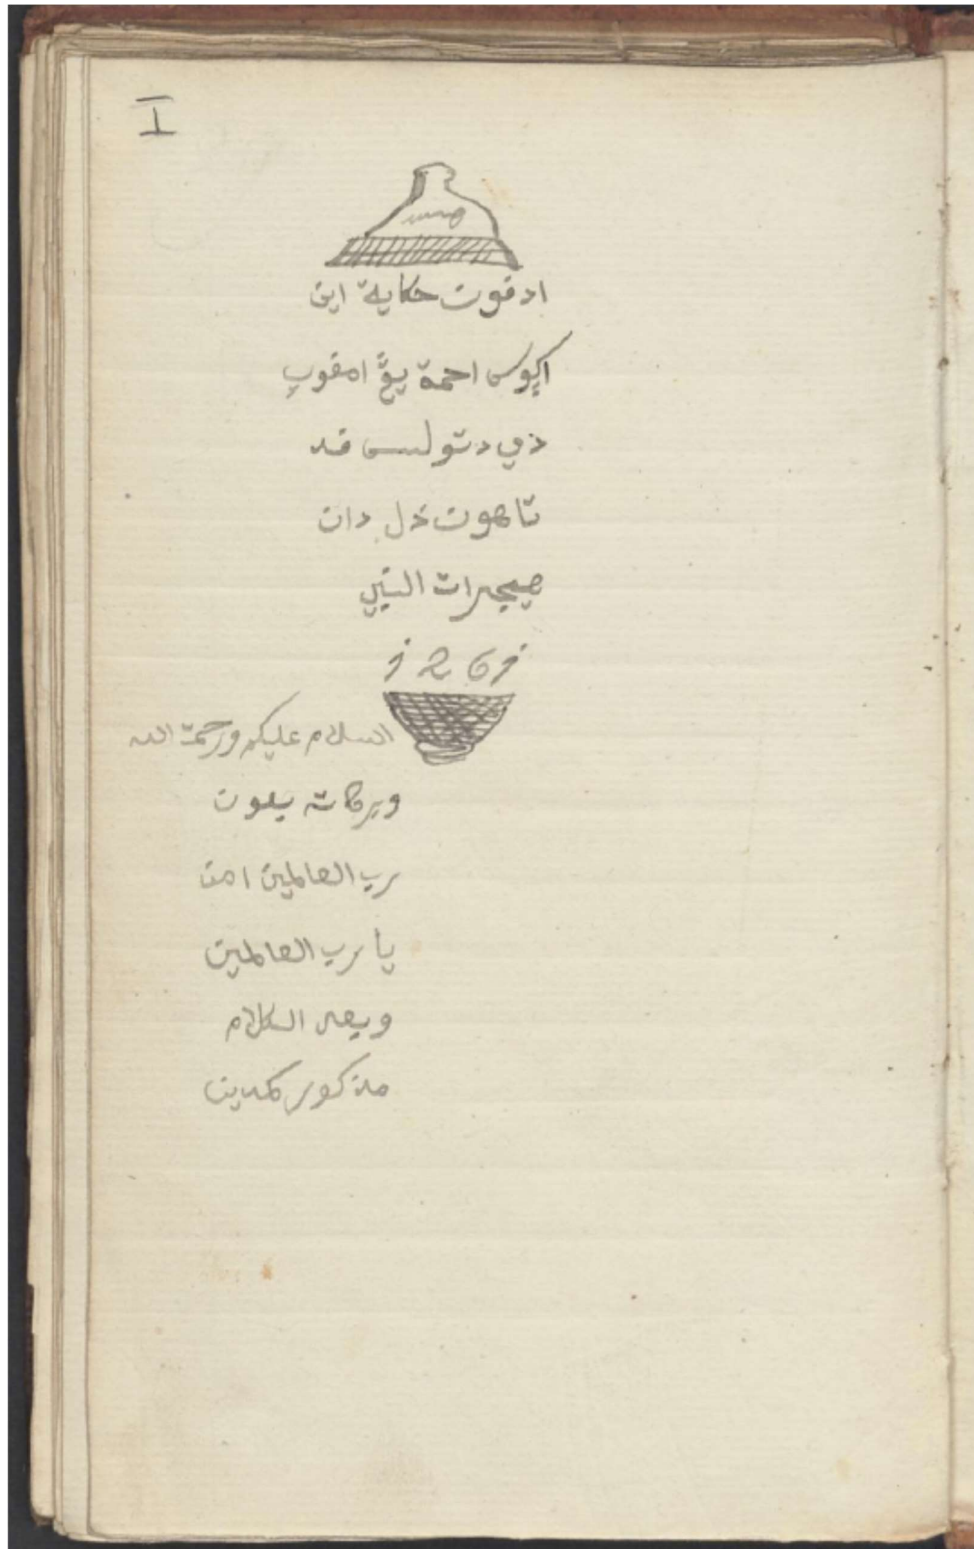 I
ادفون حكاية اين
اکوس احمد يڠ امفوڽ
دي دتوليس فد
تاهون دل دان
هيجرات النبي
1261
السلام عليكم ورحمة الله
وبركاته
رب العالمين امن
يا رب العالمين
وبعد الكلام
مذكور كمدين